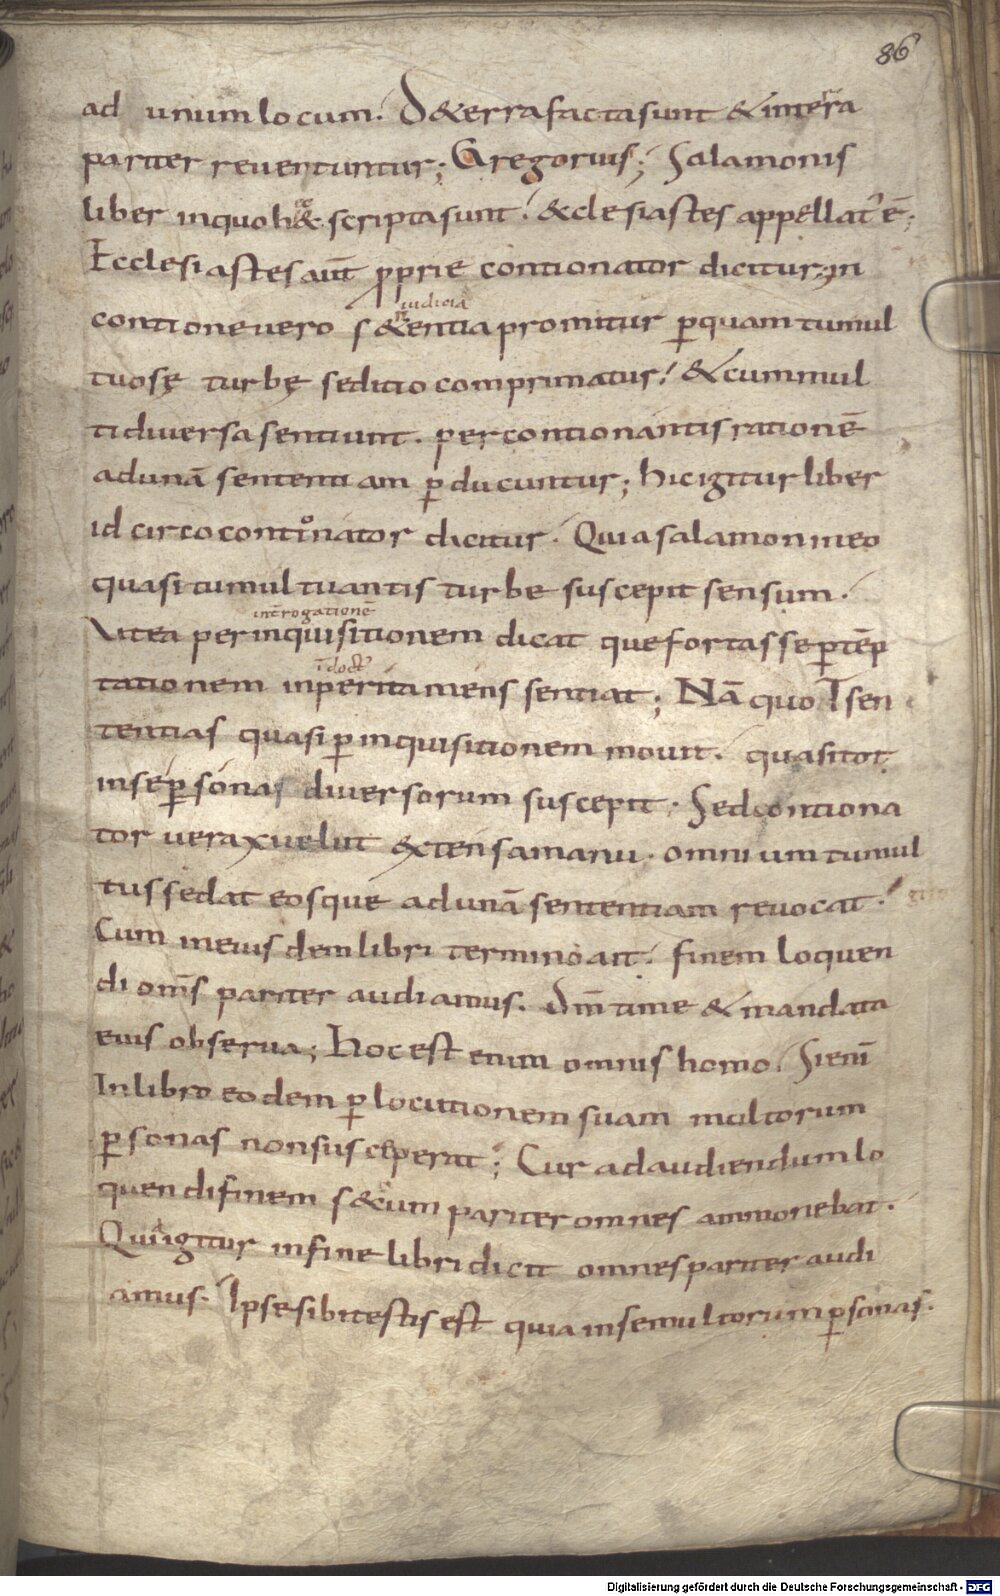 86
ad unum locum. D&erra facta sunt & interra
pariter reuertuntur; Gregorius; Salamonis
liber inquo hęc scripta sunt. &clesiastes appellat' ē;
Ecclesiastes aut̄ ꝓprie contionator dicitur; in
iudicia
contione uero sententia promitur ꝑquam tumul
tuosę turbę seditio comprimatur. & cum mul
ti diuersa sentiunt. per contionantis rationē
ad unā sententiam ꝑducuntur; hic igitur liber
idcirco contionator dicitur. Quia salamon ineo
quasi tumultuantis turbe suscepit sensum.
int̄rogationē
Vt ea per inquisitionem dicat que fortasse ꝑtēp
ī doct
tationem inperita mens sentiat; Nā quot sen
tentias quasi ꝑ inquisitionem mouit. quasi tot
inse ꝑsonas diuersorum suscepit. Sed contiona
tor uerax uelut extensa manu. omnium tumul
tus sedat eosque ad unā sententiam reuocat.
Cum in eiusdem libri termino ait. finem loquen
di om̄s pariter audiamus. dm̄ time & mandata
eius obserua; Hoc est enim omnis homo. Si enī
In libro eodem ꝑ locutionem suam multorum
ꝑsonas non susceperat; Cur ad audiendum lo
quendi finem secum pariter omnes ammonebat.
Qui igitur in fine libri dicit omnes pariter audi
amus. Ipse sibi testis est quia inse multorum ꝑsonas.
Digitalisierung gefördert durch die Deutsche Forschungsgemeinschaft - DFG